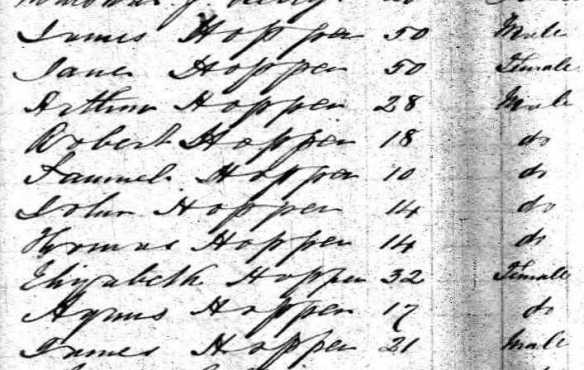 James Hopper 50 Male
Jane Hopper 50 Female
Arthur Hopper 28 Male
Robert Hopper 18 do
Samuel Hopper 10 do
John Hopper 14 do
Thomas Hopper 14 do
Elizabeth Hopper 32 Female
Agnus Hopper 17 do
James Hopper 21 Male